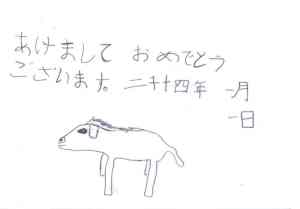 あけまして おめでとう
ございます。二千十四年 一月
一日